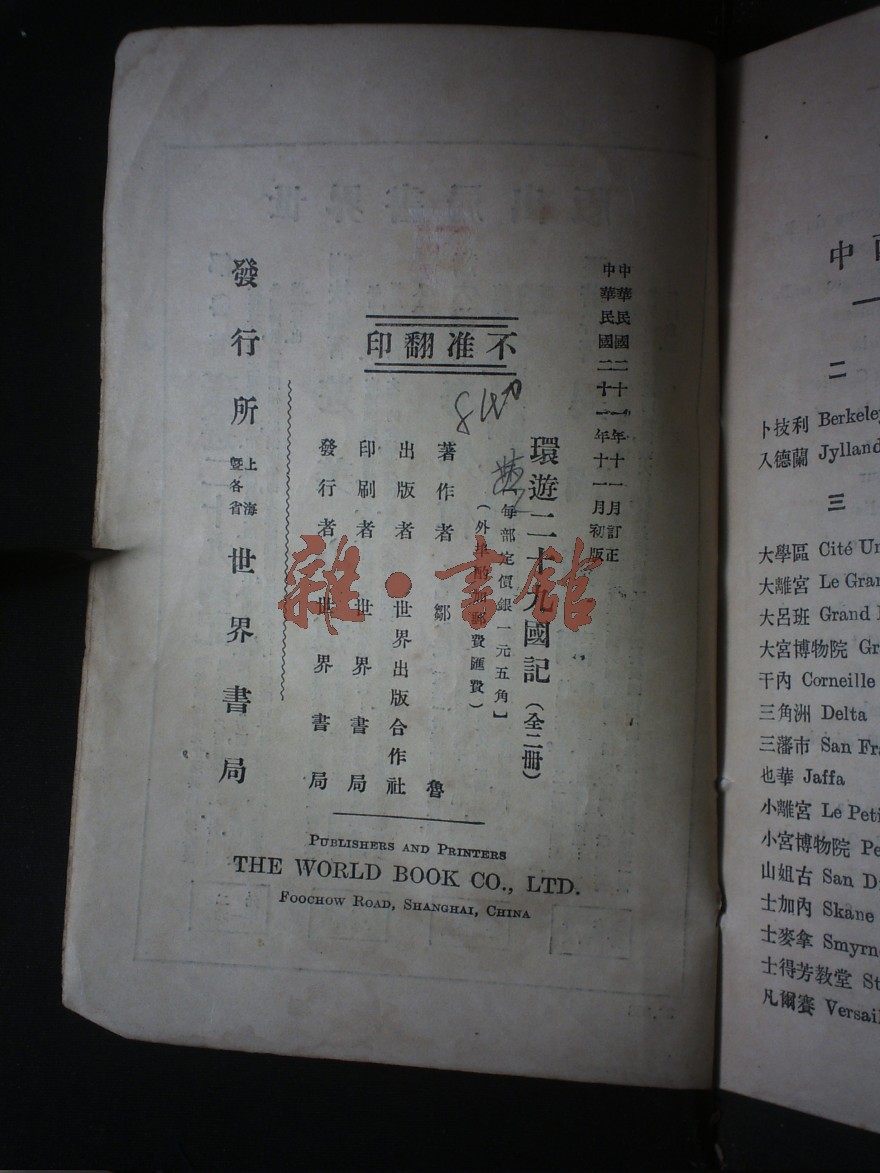 中華民國二十一年十一月訂正
中華民國二十一年十一月初版
環遊二十九國記（全二冊）
每部定價銀一元五角】
（外埠酌加郵費匯費）
著作者 鄒魯
出版者 世界出版合作社
印刷者 世界書局
發行者 世界書局
不准翻印
發行所 上海暨各省 世界書局
840
PUBLISHERS AND PRINTERS
THE WORLD BOOK CO., LTD.
FOOCHOW ROAD, SHANGHAI, CHINA
雜·書館
中
二
卜技利 Berkeley
入德蘭 Jylland
三
大學區 Cité Un
大離宮 Le Gran
大呂班 Grand
大宮博物院 Gr
干內 Corneille
三角洲 Delta
三藩市 San Fra
也華 Jaffa
小離宮 Le Peti
小宮博物院 Pe
山姐古 San D
士加內 Skane
士麥拿 Smyrn
士得芳教堂 St
凡爾賽 Versail